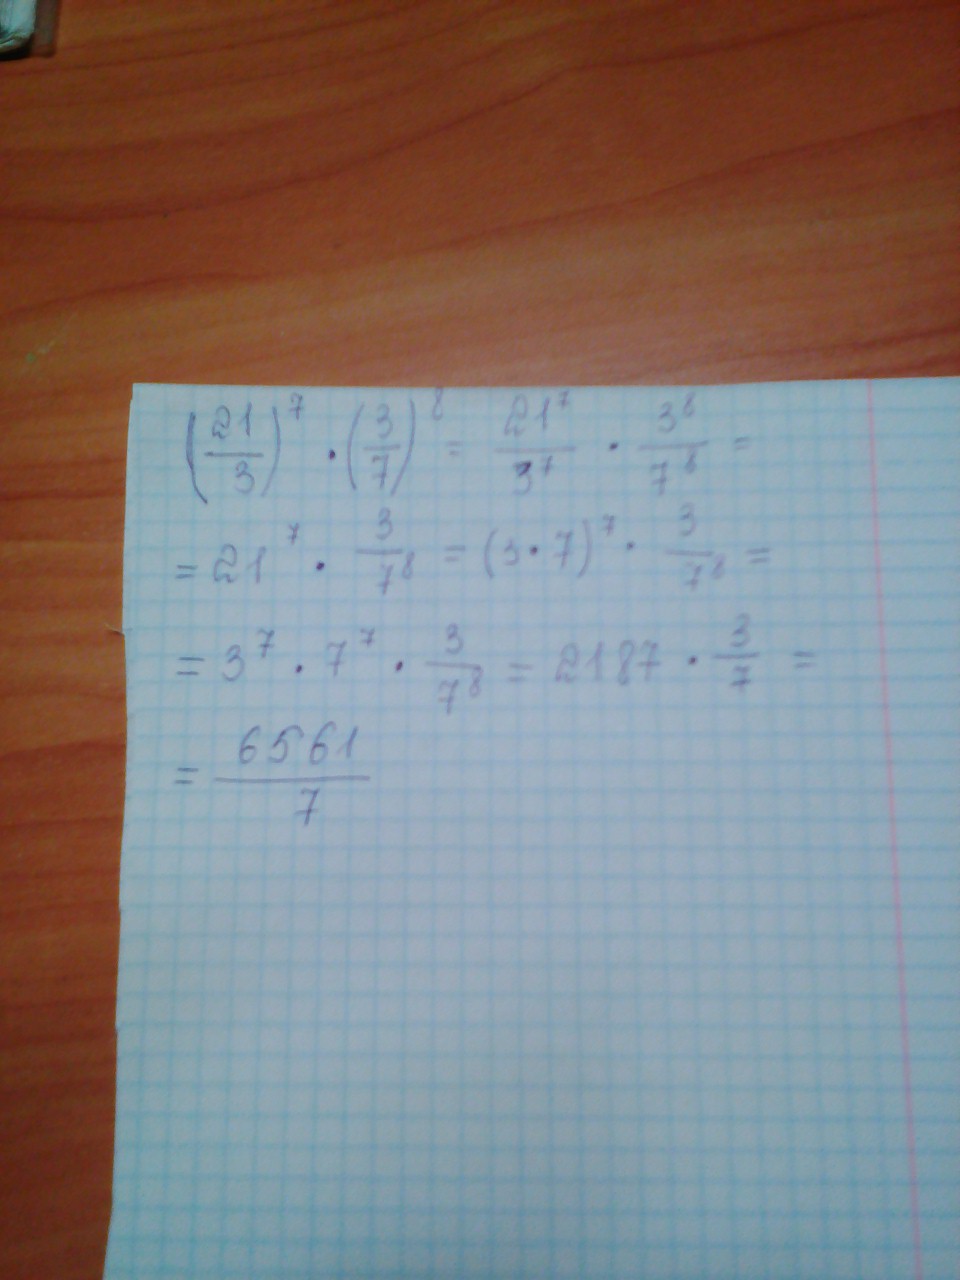 (21/3)⁷ · (3/7)⁸ = 21⁷/3⁷ · 3⁸/7⁸ =
= 21⁷ · 3/7⁸ = (3·7)⁷ · 3/7⁸ =
= 3⁷ · 7⁷ · 3/7⁸ = 2187 · 3/7 =
= 6561/7